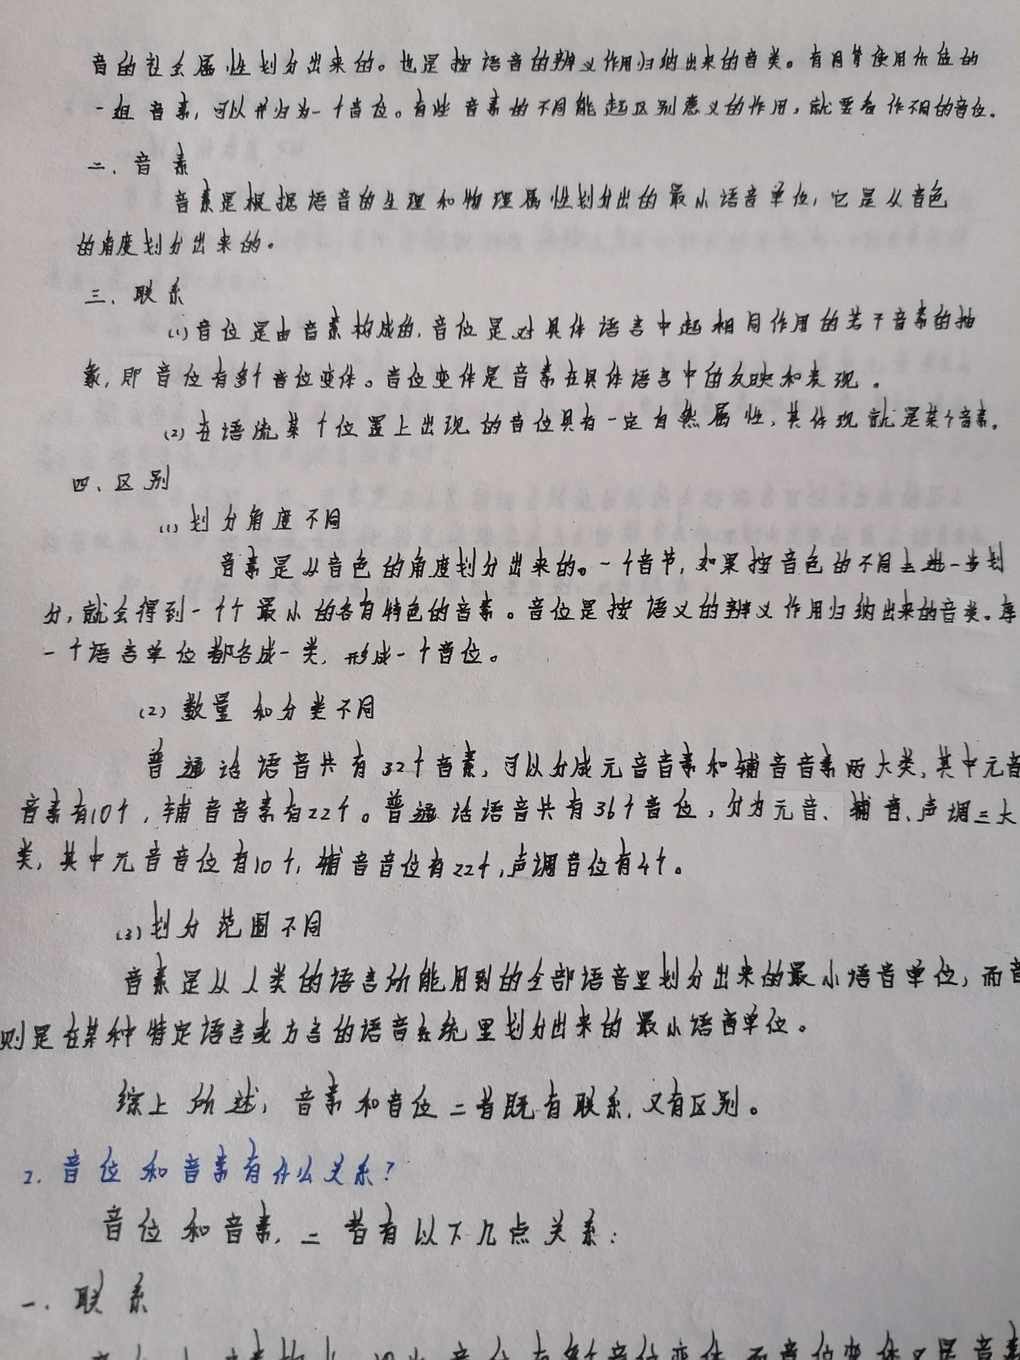 音的社会属性划分出来的。也是按语音的辨义作用归纳出来的音类。有同样使用价值的
一组音素,可以并归为一个音位。有些音素的不同能起区别意义的作用,就要看作不同的音位。
二、音素
音素是根据语音的生理和物理属性划分出的最小语音单位,它是从音色
的角度划分出来的。
三、联系
(1)音位是由音素构成的,音位是对具体语言中起相同作用的若干音素的抽
象,即音位有多个音位变体。音位变体是音素在具体语言中的反映和表现。
(2)在语流某个位置上出现的音位具有一定自然属性,其体现就是某个音素。
四、区别
(1)划分角度不同
音素是从音色的角度划分出来的。一个音节,如果按音色的不同去进一步划
分,就会得到一个个最小的各有特色的音素。音位是按语义的辨义作用归纳出来的音类。每
一个语言单位都各成一类,形成一个音位。
(2)数量和分类不同
普通话语音共有32个音素,可以分成元音音素和辅音音素两大类,其中元音
音素有10个,辅音音素有22个。普通话语音共有36个音位,分为元音、辅音、声调三大
类,其中元音音位有10个,辅音音位有22个,声调音位有4个。
(3)划分范围不同
音素是从人类的语言所能用到的全部语音里划分出来的最小语音单位,而音
则是在某种特定语言或方言的语音系统里划分出来的最小语音单位。
综上所述,音素和音位二者既有联系,又有区别。
2.音位和音素有什么关系?
音位和音素,二者有以下几点关系:
一、联系